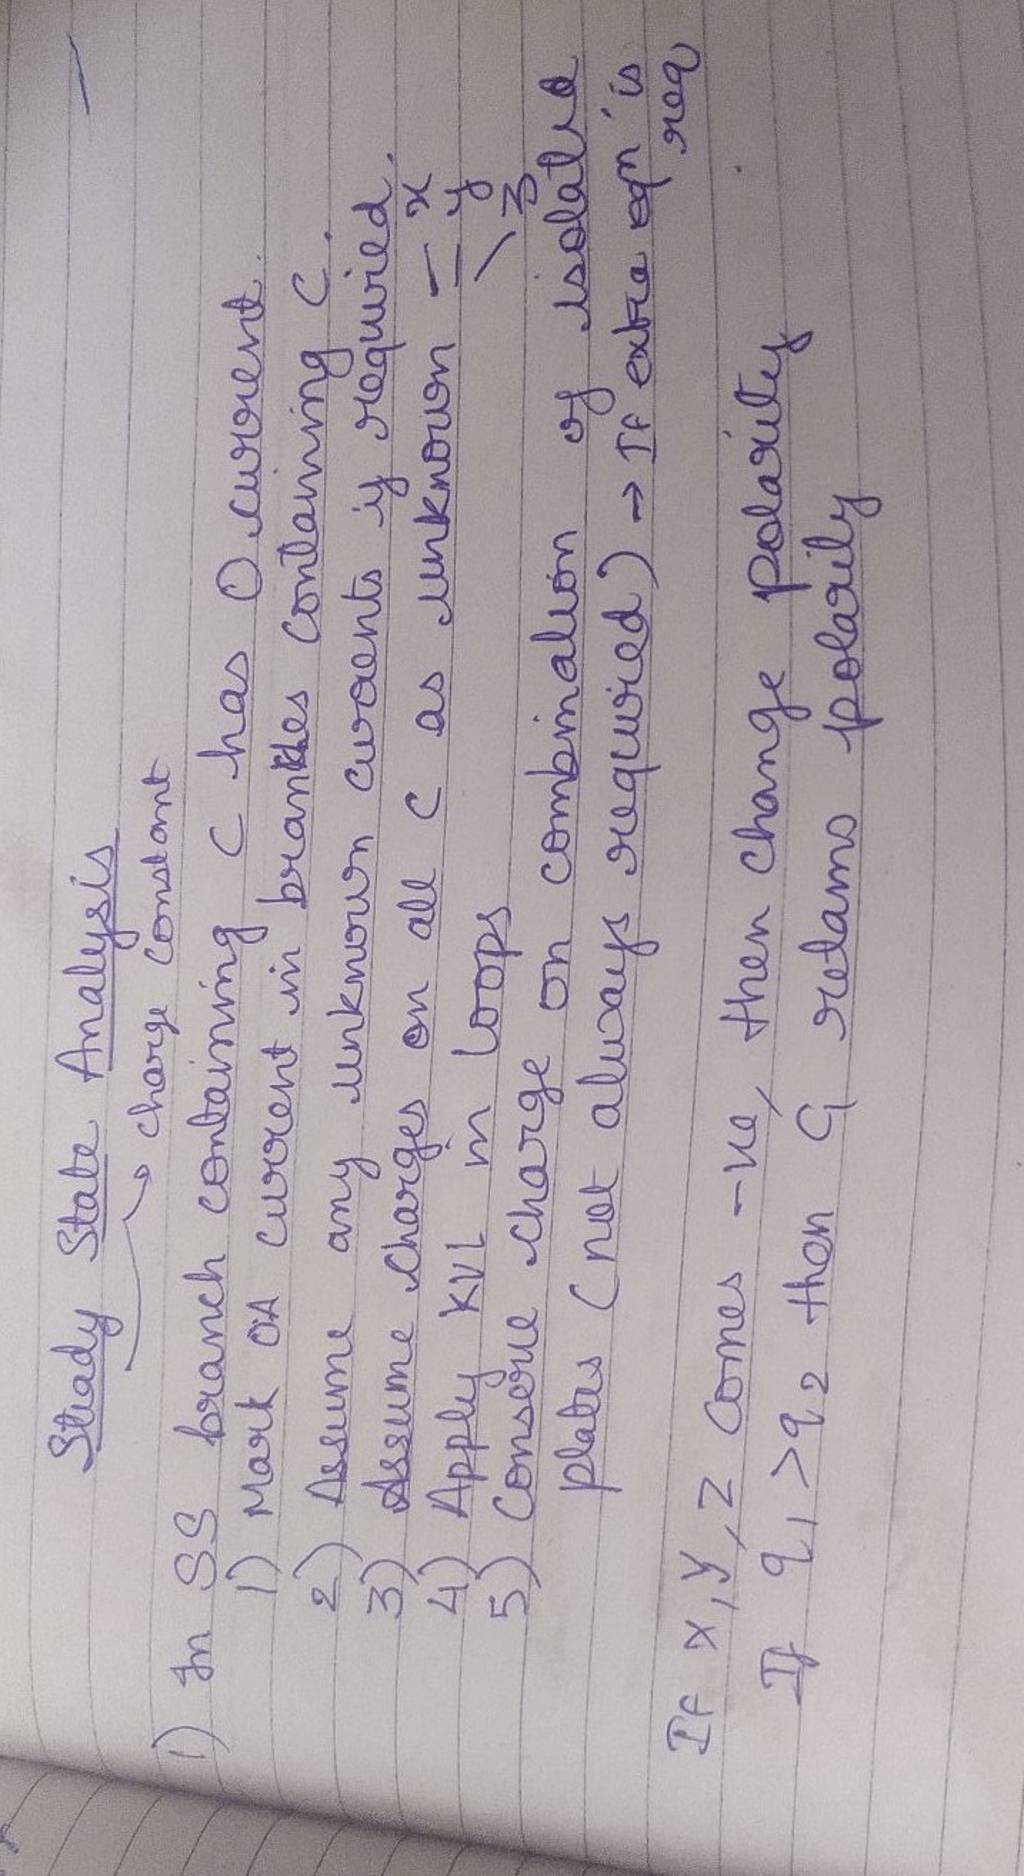 Steady State Analysis
→ charge constant
1) In SS branch containing C has 0 current.
1) Mark 0A current in branches containing C.
2) Assume any unknown currents if required.
3) Assume charges on all C as unknown - x
- y
\ z
4) Apply KVL in loops
5) Conserve charge on combination of isolated
plates (not always required) → If extra eqn is
req
If x, y, z comes -ve, then change polarity
If q1 > q2 then C1 retains polarity